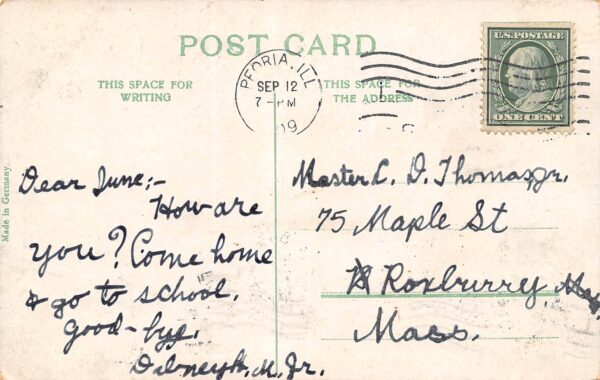 POST CARD
THIS SPACE FOR
WRITING
THIS SPACE FOR
THE ADDRESS
PEORIA, ILL
SEP 12
7-PM
09
U.S. POSTAGE
ONE CENT
Made in Germany.
Dear June;-
How are
you? Come home
& go to school.
Good-bye.
M. Jr.
Master C. D. Thomas, jr.
75 Maple St
Roxburrey,
Mass.